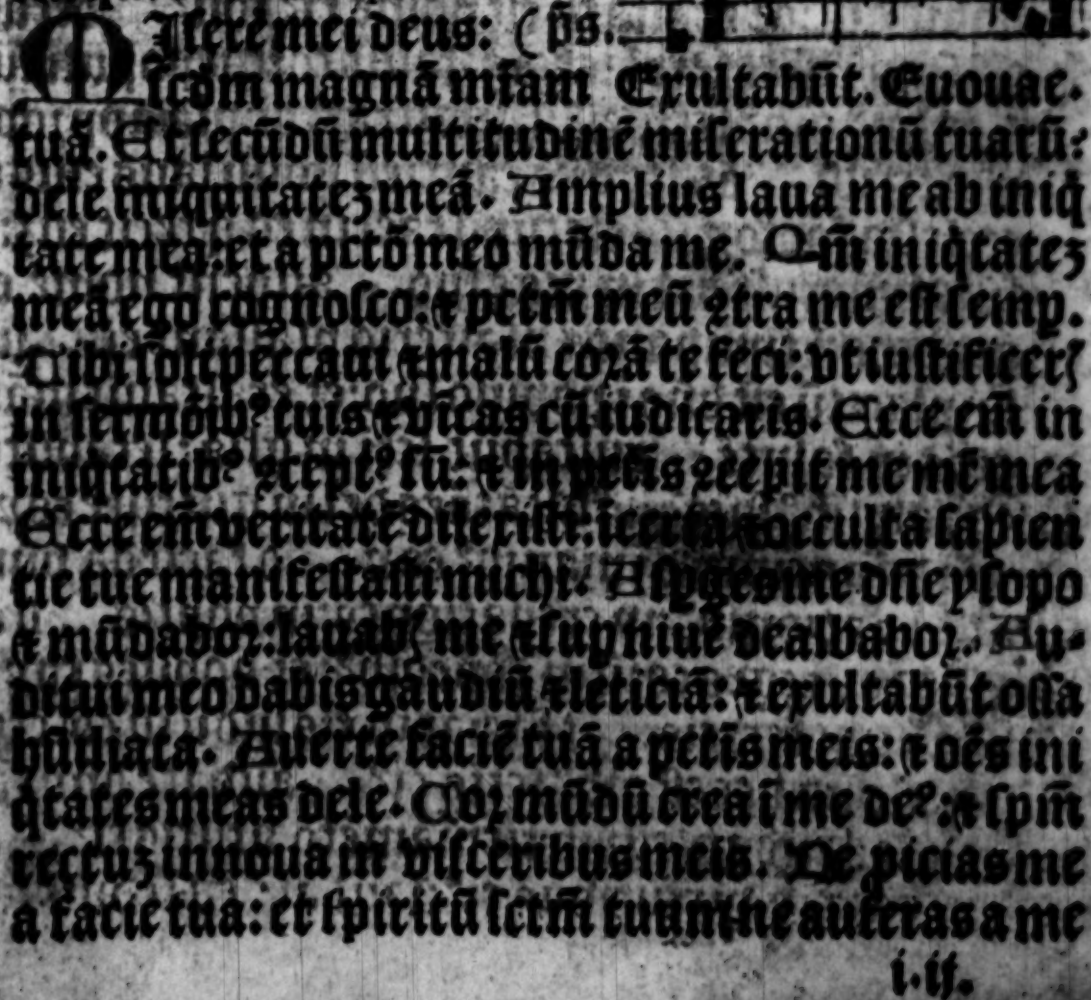 MIserē mei deus: (p̄s.
scd̄m magnā mīam Exultabūt. Euouae.
tuā. Et secūdū multitudinē miserationū tuarū:
dele iniquitateꝫ meā. Amplius laua me ab iniq̇
tate mea: et a pctō meo mūda me. Qm̄ iniq̇tateꝫ
meā ego cognosco: ⁊ pctm̄ meū ꝯtra me est semꝑ.
Tibi soli peccaui ⁊ malū coꝛā te feci: vt iustificerꝭ
in sermōibꝰ tuis ⁊ vīcas cū iudicaris. Ecce em̄ in
iniq̇tatibꝰ ꝯceptꝰ sū: ⁊ in pctīs ꝯcepit me mr̄ mea
Ecce em̄ veritatē dilexisti: īcerta ⁊ occulta sapien
tie tue manifestasti michi. Asꝑges me dn̄e ysopo
⁊ mūdaboꝛ: lauabꝭ me ⁊ suꝑ niuē dealbaboꝛ. Au-
ditui meo dabis gaudiū ⁊ leticiā: ⁊ exultabūt ossa
hūiliata. Auerte faciē tuā a pctīs meis: ⁊ oēs ini
q̇tates meas dele. Coꝛ mūdū crea ī me deꝰ: ⁊ spm̄
rectuꝫ innoua in visceribus meis. Ne ꝓicias me
a facie tua: et spiritū sctm̄ tuum ne auferas a me
i.ij.